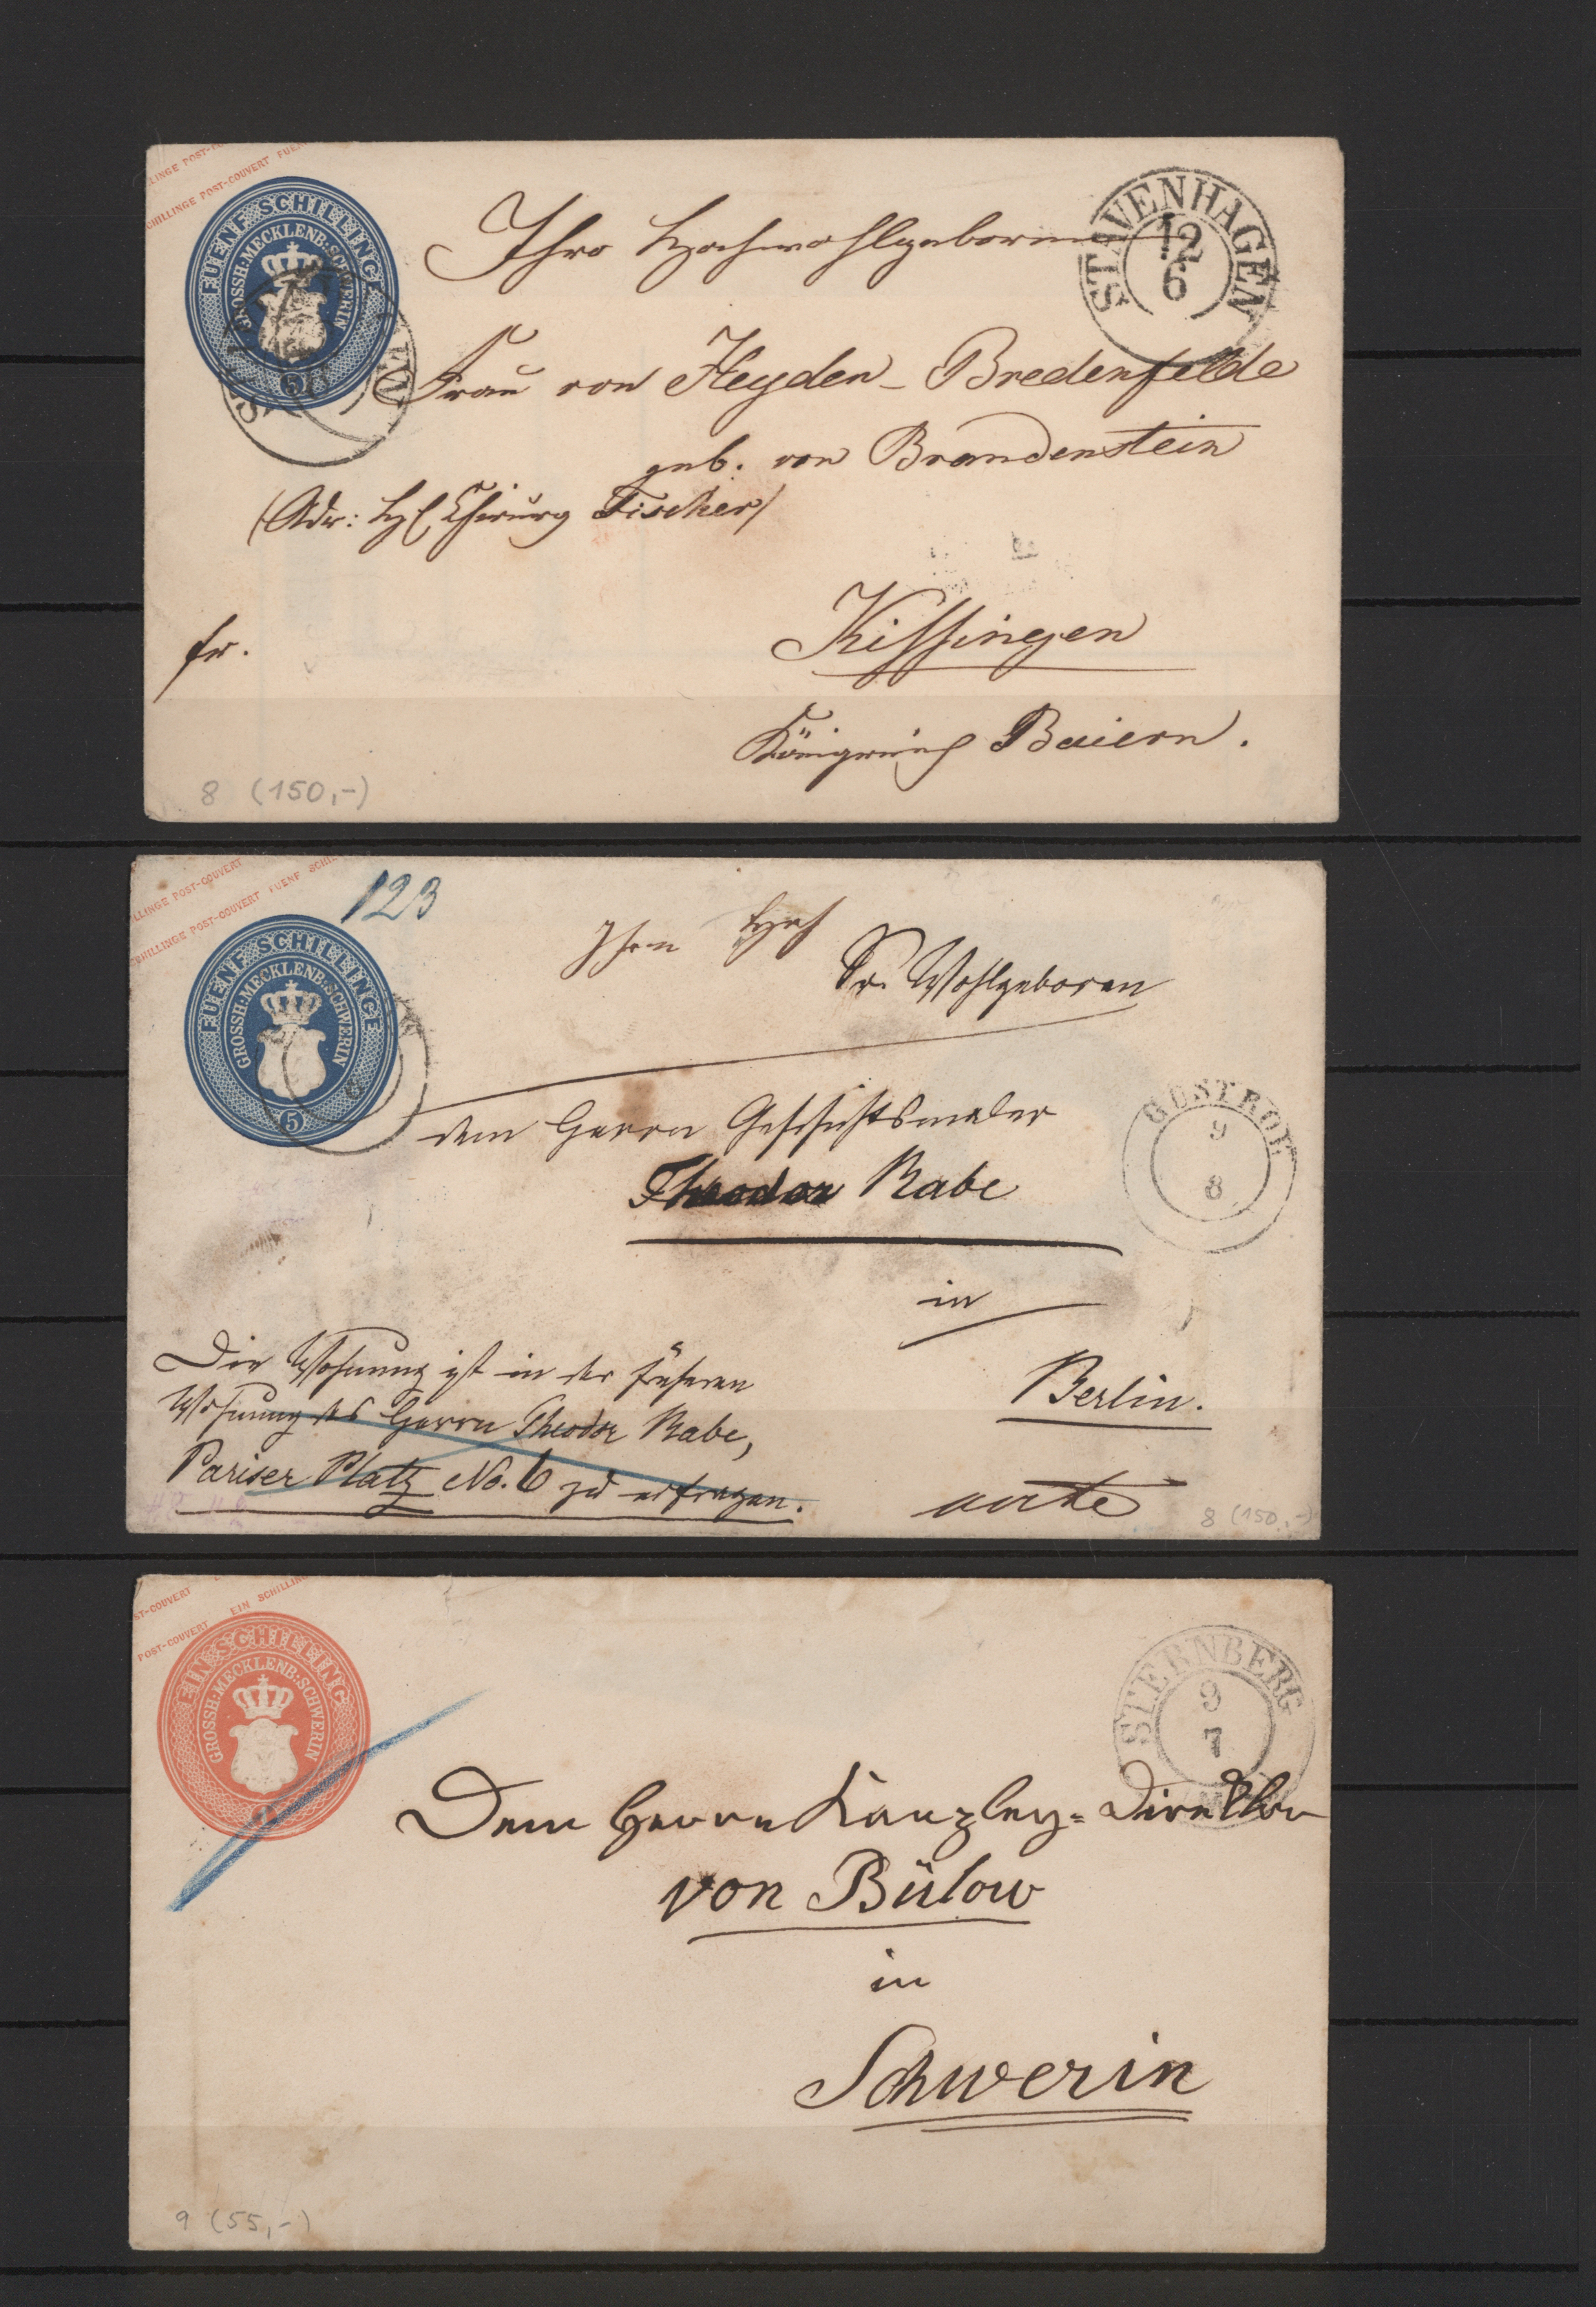 LINGE POST-
SCHILLINGE POST-COUVERT FUE
FUENF SCHILLINGE
GROSSH: MECKLENB: SCHWERIN
5
STAVENHAGEN
12
6
Ihro Hochwohlgeboren
Frau von Heyden-Bredenfelde
geb. von Brandenstein
(Adr: H Chirurg Fischer)
Kissingen
fr.
Königreich Baiern.
8 (150,-)
LLINGE POST-COUVERT
SCHILLINGE POST-COUVERT FUENF SCHI
123
FUENF SCHILLINGE
GROSSH: MECKLENB: SCHWERIN
5
Sr. Wohlgeboren
dem Herrn Geschichtsmaler
GÜSTROW
9
8
Theodor Rabe
in
Die Wohnung ist in der früheren
Wohnung des Herrn Theodor Rabe,
Pariser Platz No. 6 zu erfragen.
Berlin.
8 (150,-)
ST-COUVERT
POST-COUVERT EIN SCHILLIN
EIN SCHILLING
GROSSH: MECKLENB: SCHWERIN
STERNBERG
9
7
Dem Herrn Kanzley-Direktor
von Bülow
in
Schwerin
9 (55,-)